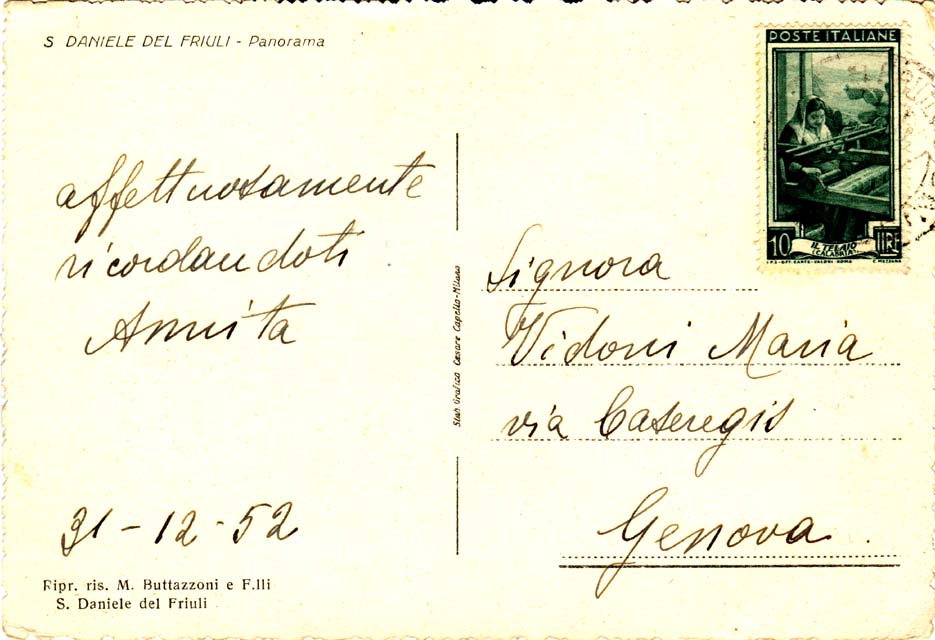 S DANIELE DEL FRIULI - Panorama
POSTE ITALIANE
10 IL TELAIO LIRE
(CALABRIA)
I.P.S.-OFF. CARTE-VALORI-ROMA E. MEZZANA
affettuosamente
ricordandoti
Annita
31-12-52
Ripr. ris. M. Buttazzoni e F.lli
S. Daniele del Friuli
Stab. Grafico Cesare Capello-Milano
Signora
Vidoni Maria
via Casaregis
Genova